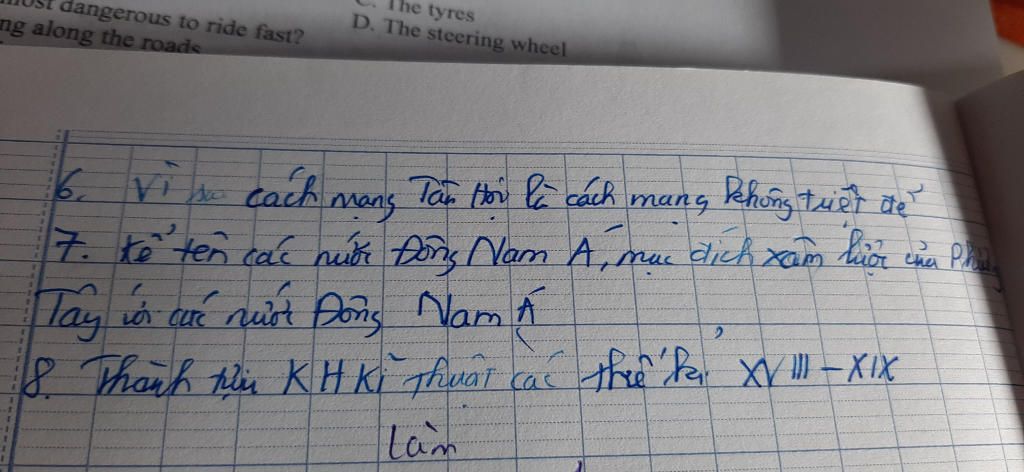 most dangerous to ride fast?
ng along the roads
C. The tyres
D. The steering wheel
6. Vì sao cách mạng Tân Hợi là cách mạng không triệt để
7. Kể tên các nước Đông Nam Á, mục đích xâm lược của Phương
Tây với các nước Đông Nam Á
8. Thành tựu KH Kĩ thuật các thế kỉ XVIII - XIX
Làm